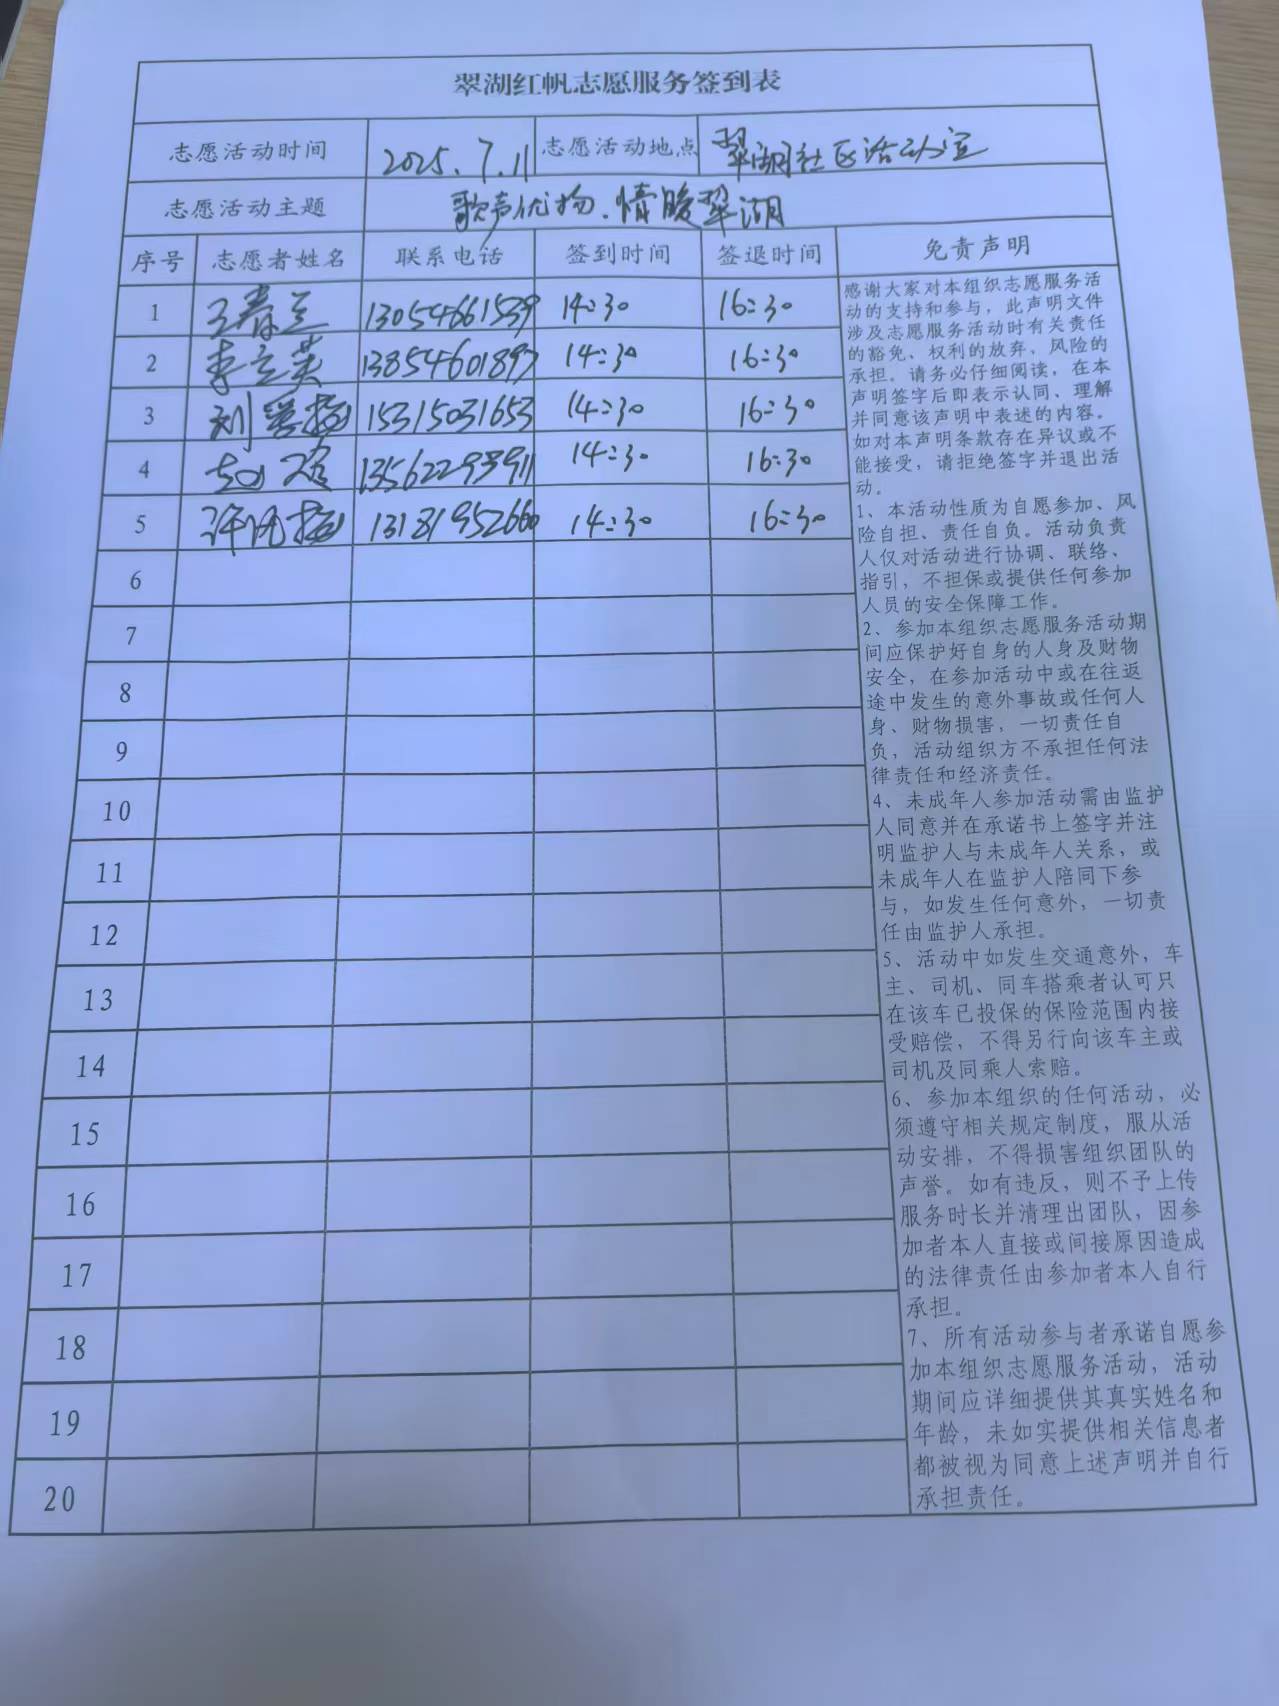 翠湖红帆志愿服务签到表
志愿活动时间 2025.7.11 志愿活动地点 翠湖社区活动室
志愿活动主题 歌声优扬.情暖翠湖
序号 志愿者姓名 联系电话 签到时间 签退时间 免责声明
1 王春兰 13054661539 14:30 16:30
2 李立英 13854601897 14:30 16:30
3 刘爱梅 15315031653 14:30 16:30
4 13562293911 14:30 16:30
5 13181952660 14:30 16:30
6
7
8
9
10
11
12
13
14
15
16
17
18
19
20
感谢大家对本组织志愿服务活
动的支持和参与，此声明文件
涉及志愿服务活动时有关责任
的豁免、权利的放弃、风险的
承担。请务必仔细阅读，在本
声明签字后即表示认同、理解
并同意该声明中表述的内容。
如对本声明条款存在异议或不
能接受，请拒绝签字并退出活
动。
1、本活动性质为自愿参加、风
险自担、责任自负。活动负责
人仅对活动进行协调、联络、
指引，不担保或提供任何参加
人员的安全保障工作。
2、参加本组织志愿服务活动期
间应保护好自身的人身及财物
安全，在参加活动中或在往返
途中发生的意外事故或任何人
身、财物损害，一切责任自
负，活动组织方不承担任何法
律责任和经济责任。
4、未成年人参加活动需由监护
人同意并在承诺书上签字并注
明监护人与未成年人关系，或
未成年人在监护人陪同下参
与，如发生任何意外，一切责
任由监护人承担。
5、活动中如发生交通意外，车
主、司机、同车搭乘者认可只
在该车已投保的保险范围内接
受赔偿，不得另行向该车主或
司机及同乘人索赔。
6、参加本组织的任何活动，必
须遵守相关规定制度，服从活
动安排，不得损害组织团队的
声誉。如有违反，则不予上传
服务时长并清理出团队，因参
加者本人直接或间接原因造成
的法律责任由参加者本人自行
承担。
7、所有活动参与者承诺自愿参
加本组织志愿服务活动，活动
期间应详细提供其真实姓名和
年龄，未如实提供相关信息者
都被视为同意上述声明并自行
承担责任。